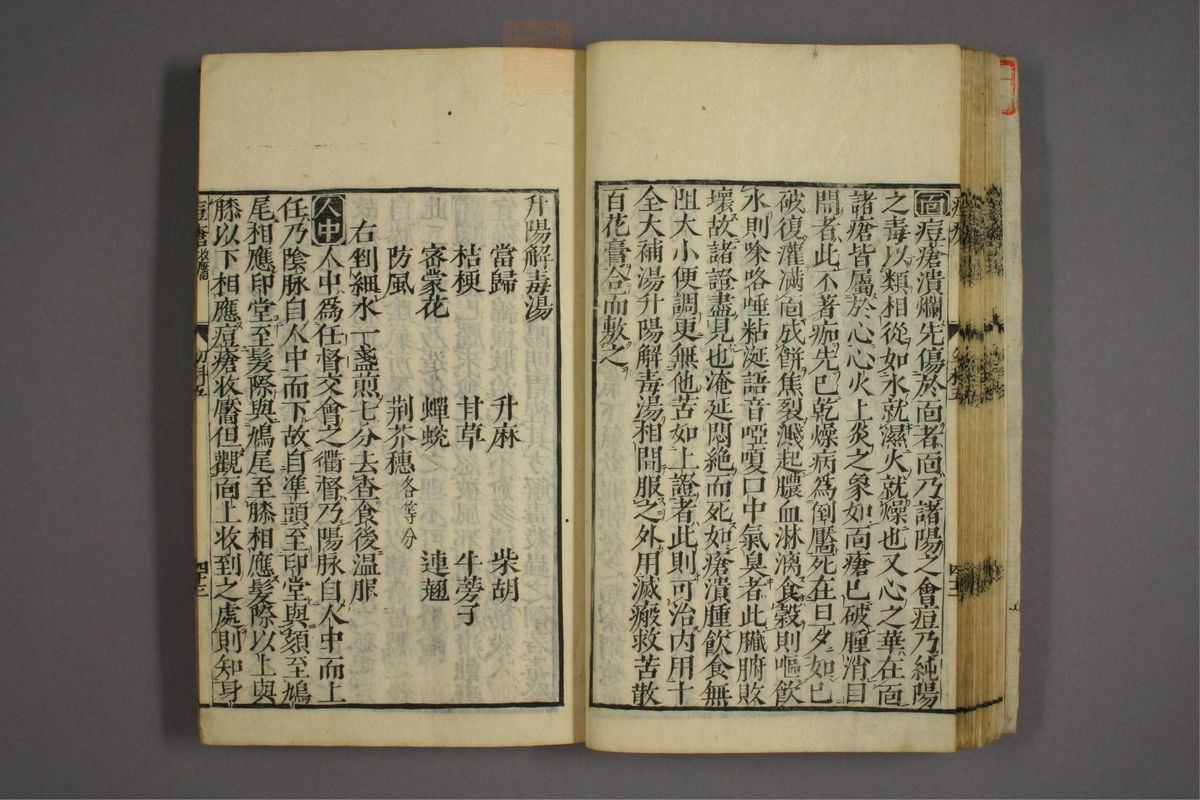 面痘瘡潰爛先傷於面者面乃諸陽之會痘乃純陽
之毒以類相從如水就濕火就燥也又心之華在面
諸瘡皆屬於心心火上炎之象如面瘡已破腫消目
開者此不著痂先已乾燥病為倒黶死在旦夕如已
破復灌滿面成餅焦裂濺起膿血淋漓食穀則嘔飲
水則咯唾粘涎語音啞嗄口中氣臭者此臟腑敗
壞故諸證盡見也淹延悶絕而死如瘡潰腫飲食無
阻大小便調更無他苦如上證者此則可治内用十
全大補湯升陽解毒湯相間服之外用滅瘢救苦散
百花膏合而敷之
升陽解毒湯
當歸 升麻 柴胡
桔梗 甘草 牛蒡子
密蒙花 蟬蛻 連翹
防風 荆芥穗各等分
右剉細水一盞煎七分去査食後溫服
人中人中為任督交會之衢督乃陽脉自人中而上
任乃陰脉自人中而下故自準頭至印堂與頦至鳩
尾相應印堂至髮際與鳩尾至膝相應髮際以上與
膝以下相應痘瘡收靨但觀面上收到之處則知身
痘瘡收靨 幼科五 四十三